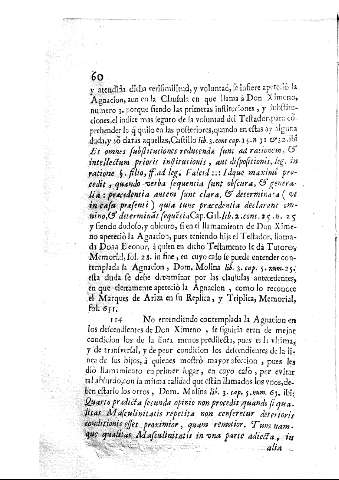 60
y atendida dicha verisimilitud, y voluntad, se infiere apeteciò la
Agnacion, aun en la Clausula en que llama à Don Ximeno,
numero 3. porque siendo las primeras instituciones, y substitu-
ciones, el indice mas seguro de la voluntad del Testador, para co-
prehender lo q̃ quiso en las posteriores, quando en estas ay alguna
duda, y sõ claras aquellas, Castillo lib. 3. cont. cap. 15. n. 31. & 32. ibi
Et omnes substitutiones reducendæ sunt ad rationem, &
intellectum prioris institutionis, aut dispositionis, leg. in
ratione §. filio, ff. ad leg. Falcid. Idque maximè pro-
cedit, quando verba sequentia sunt obscura, & genera-
lia: præcedentia autem sunt clara, & determinata (ut
in casu præsenti) quia tunc præcedentia declarant om-
nino, & determinãt sequẽtia Cap. Gil. lib. 2. cont. 25. n. 25
y siendo dudoso, y obscuro, si en el llamamiento de Don Xime-
no apeteciò la Agnacion, pues teniendo hijas el Testador, llama-
da Doña Eleonor, à quien en dicho Testamento le dà Tutores,
Memorial, fol. 28. in fine, en cuyo caso se puede entender con-
templada la Agnacion, Dom. Molina lib. 3. cap. 5. num. 25.
esta duda se debe determinar por las clausulas antecedentes,
en que ciertamente apeteciò la Agnacion, como lo reconoce
el Marques de Ariza en su Replica, y Triplica, Memorial,
fol. 651.
114 No entendiendo contemplada la Agnacion en
los descendientes de Don Ximeno, se seguiria eran de mejor
condicion los de la linea menos predilecta, pues es la vltima,
y de transversal, y de peor condicion los descendientes de la li-
nea de sus hijos, à quienes mostrò mayor afeccion, pues les
diò llamamiento en primer lugar, en cuyo caso, por evitar
tal absurdo, con la misma calidad que estàn llamados los vnos, de-
ben estarlo los otros, Dom. Molina lib. 3. cap. 5. num. 63. ibi:
Quarto prædicta secunda opinio non procedit quando si qua-
litas Masculinitatis repetita non censeretur deterioris
conditionis esset proximior, quam remotior. Tum nam-
que qualitas Masculinitatis in vna parte adiecta, in
alia